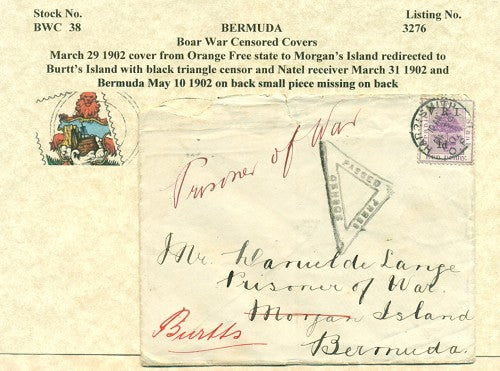 Stock No.
BWC 38
BERMUDA
Listing No.
3276
Boar War Censored Covers
March 29 1902 cover from Orange Free state to Morgan's Island redirected to
Burtt's Island with black triangle censor and Natel receiver March 31 1902 and
Bermuda May 10 1902 on back small piece missing on back
Prisoner of War
PASSED
PRESS
CENSOR
HARRISMITH
Mr. Daniel de Lange
Prisoner of War.
Morgan Island
Burtts
Bermuda.